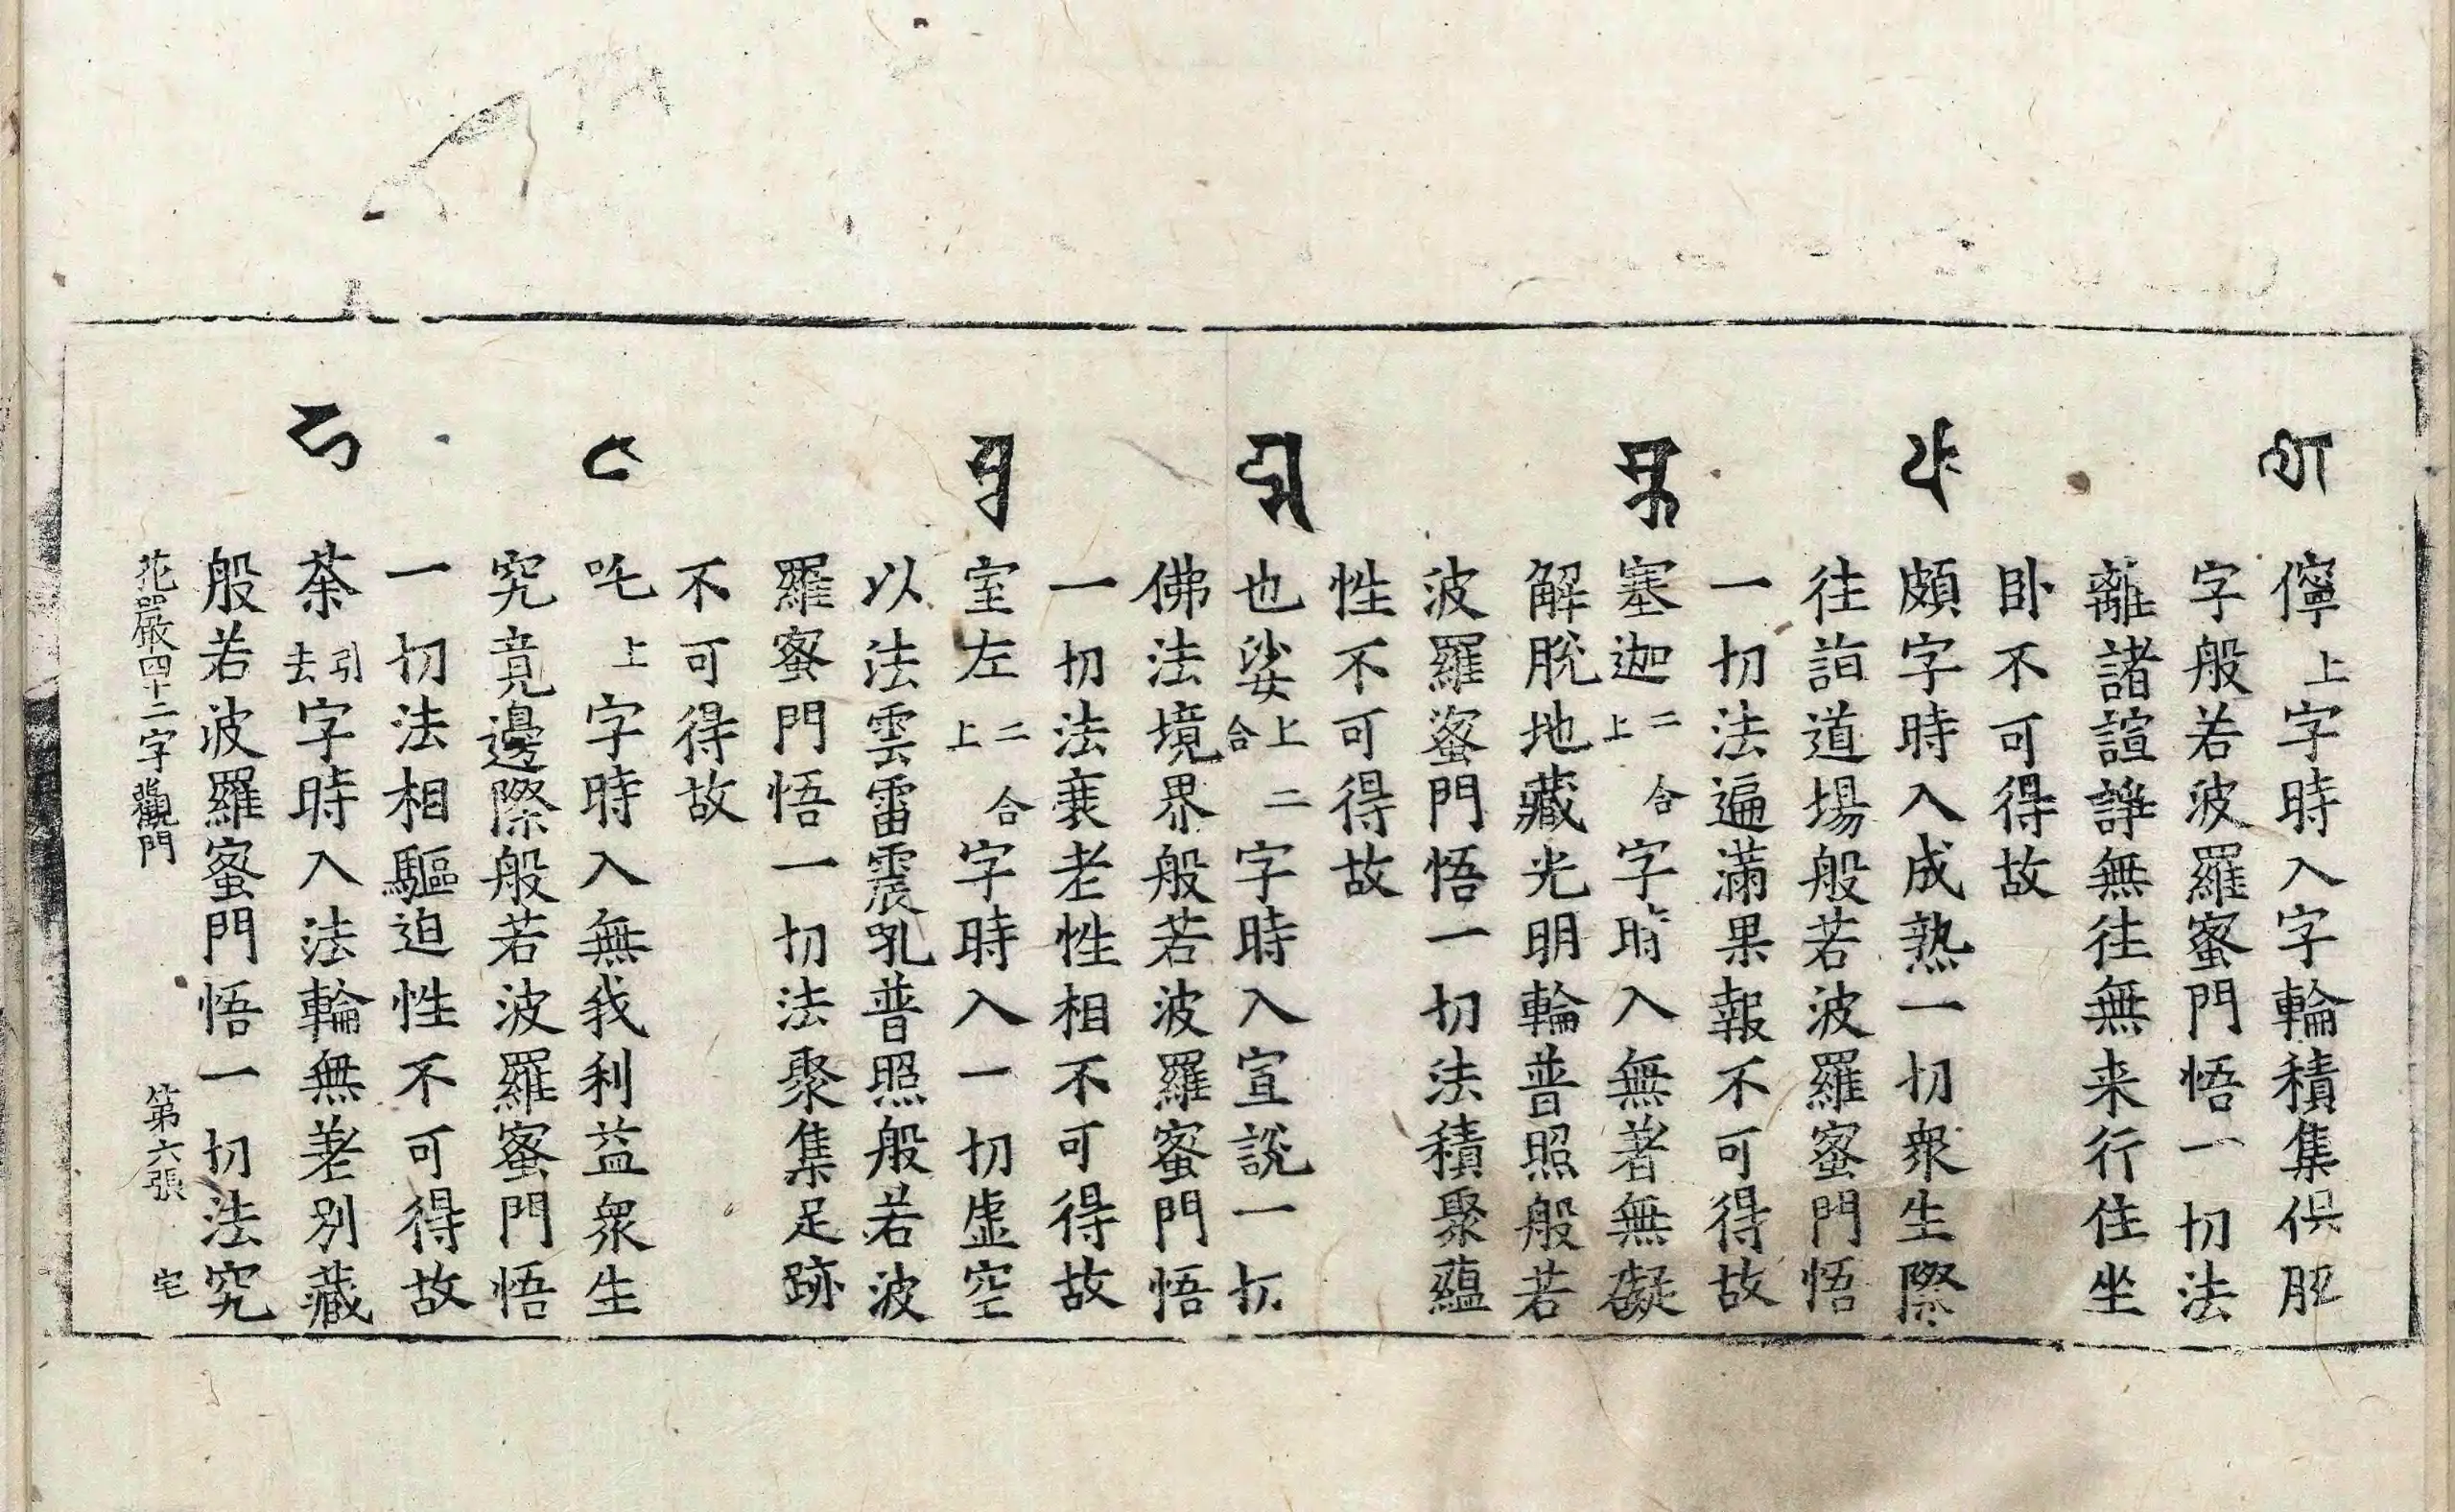 𑖜 儜上字時入字輪積集俱胝
字般若波羅蜜門悟一切法
離諸諠諍無往無来行住坐
臥不可得故
𑖣 頗字時入成熟一切衆生際
往詣道場般若波羅蜜門悟
一切法遍滿果報不可得故
𑖭𑖿𑖎 塞迦二合上字時入無著無礙
解脫地藏光明輪普照般若
波羅蜜門悟一切法積聚蘊
性不可得故
𑖧𑖿𑖭 也娑上二合字時入宣說一切
佛法境界般若波羅蜜門悟
一切法衰老性相不可得故
𑖫𑖿𑖓 室左二合上字時入一切虛空
以法雲雷震吼普照般若波
羅蜜門悟一切法聚集足跡
不可得故
𑖘 吒上字時入無我利益衆生
究竟邊際般若波羅蜜門悟
一切法相驅迫性不可得故
𑖛 荼引去字時入法輪無差別藏
般若波羅蜜門悟一切法究
花嚴四十二字觀門 第六張 宅